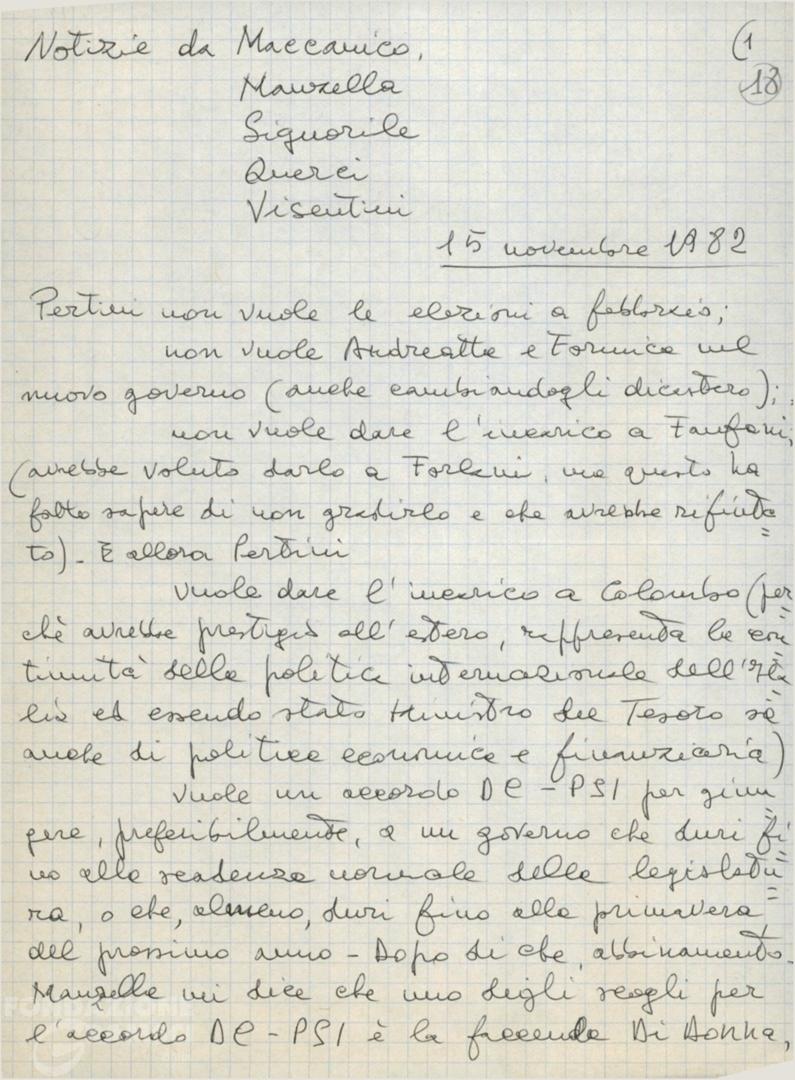 Notizie da Maccanico, (1
Manzella 18
Signorile
Querci
Visentini
15 novembre 1982
Pertini non vuole le elezioni a febbraio;
non vuole Andreatta e Formica nel
nuovo governo (anche cambiandogli dicastero);
non vuole dare l'incarico a Fanfani,
(avrebbe voluto darlo a Forlani, ma questo ha
fatto sapere di non gradirlo e che avrebbe rifiuta=
to). E allora Pertini
vuole dare l'incarico a Colombo (per=
chè avrebbe prestigio all'estero, rappresenta la con=
tinuità della politica internazionale dell'Ita=
lia ed essendo stato Ministro del Tesoro sa
anche di politica economica e finanziaria)
vuole un accordo DC-PSI per giun=
gere, preferibilmente, a un governo che duri fi=
no alla scadenza normale della legislatu=
ra, o che, almeno, duri fino alla primavera
del prossimo anno - Dopo di che, abbinamento.
Manzella mi dice che uno degli scogli per
l'accordo DC-PSI è la faccenda Di Donna,
FONDAZIONE